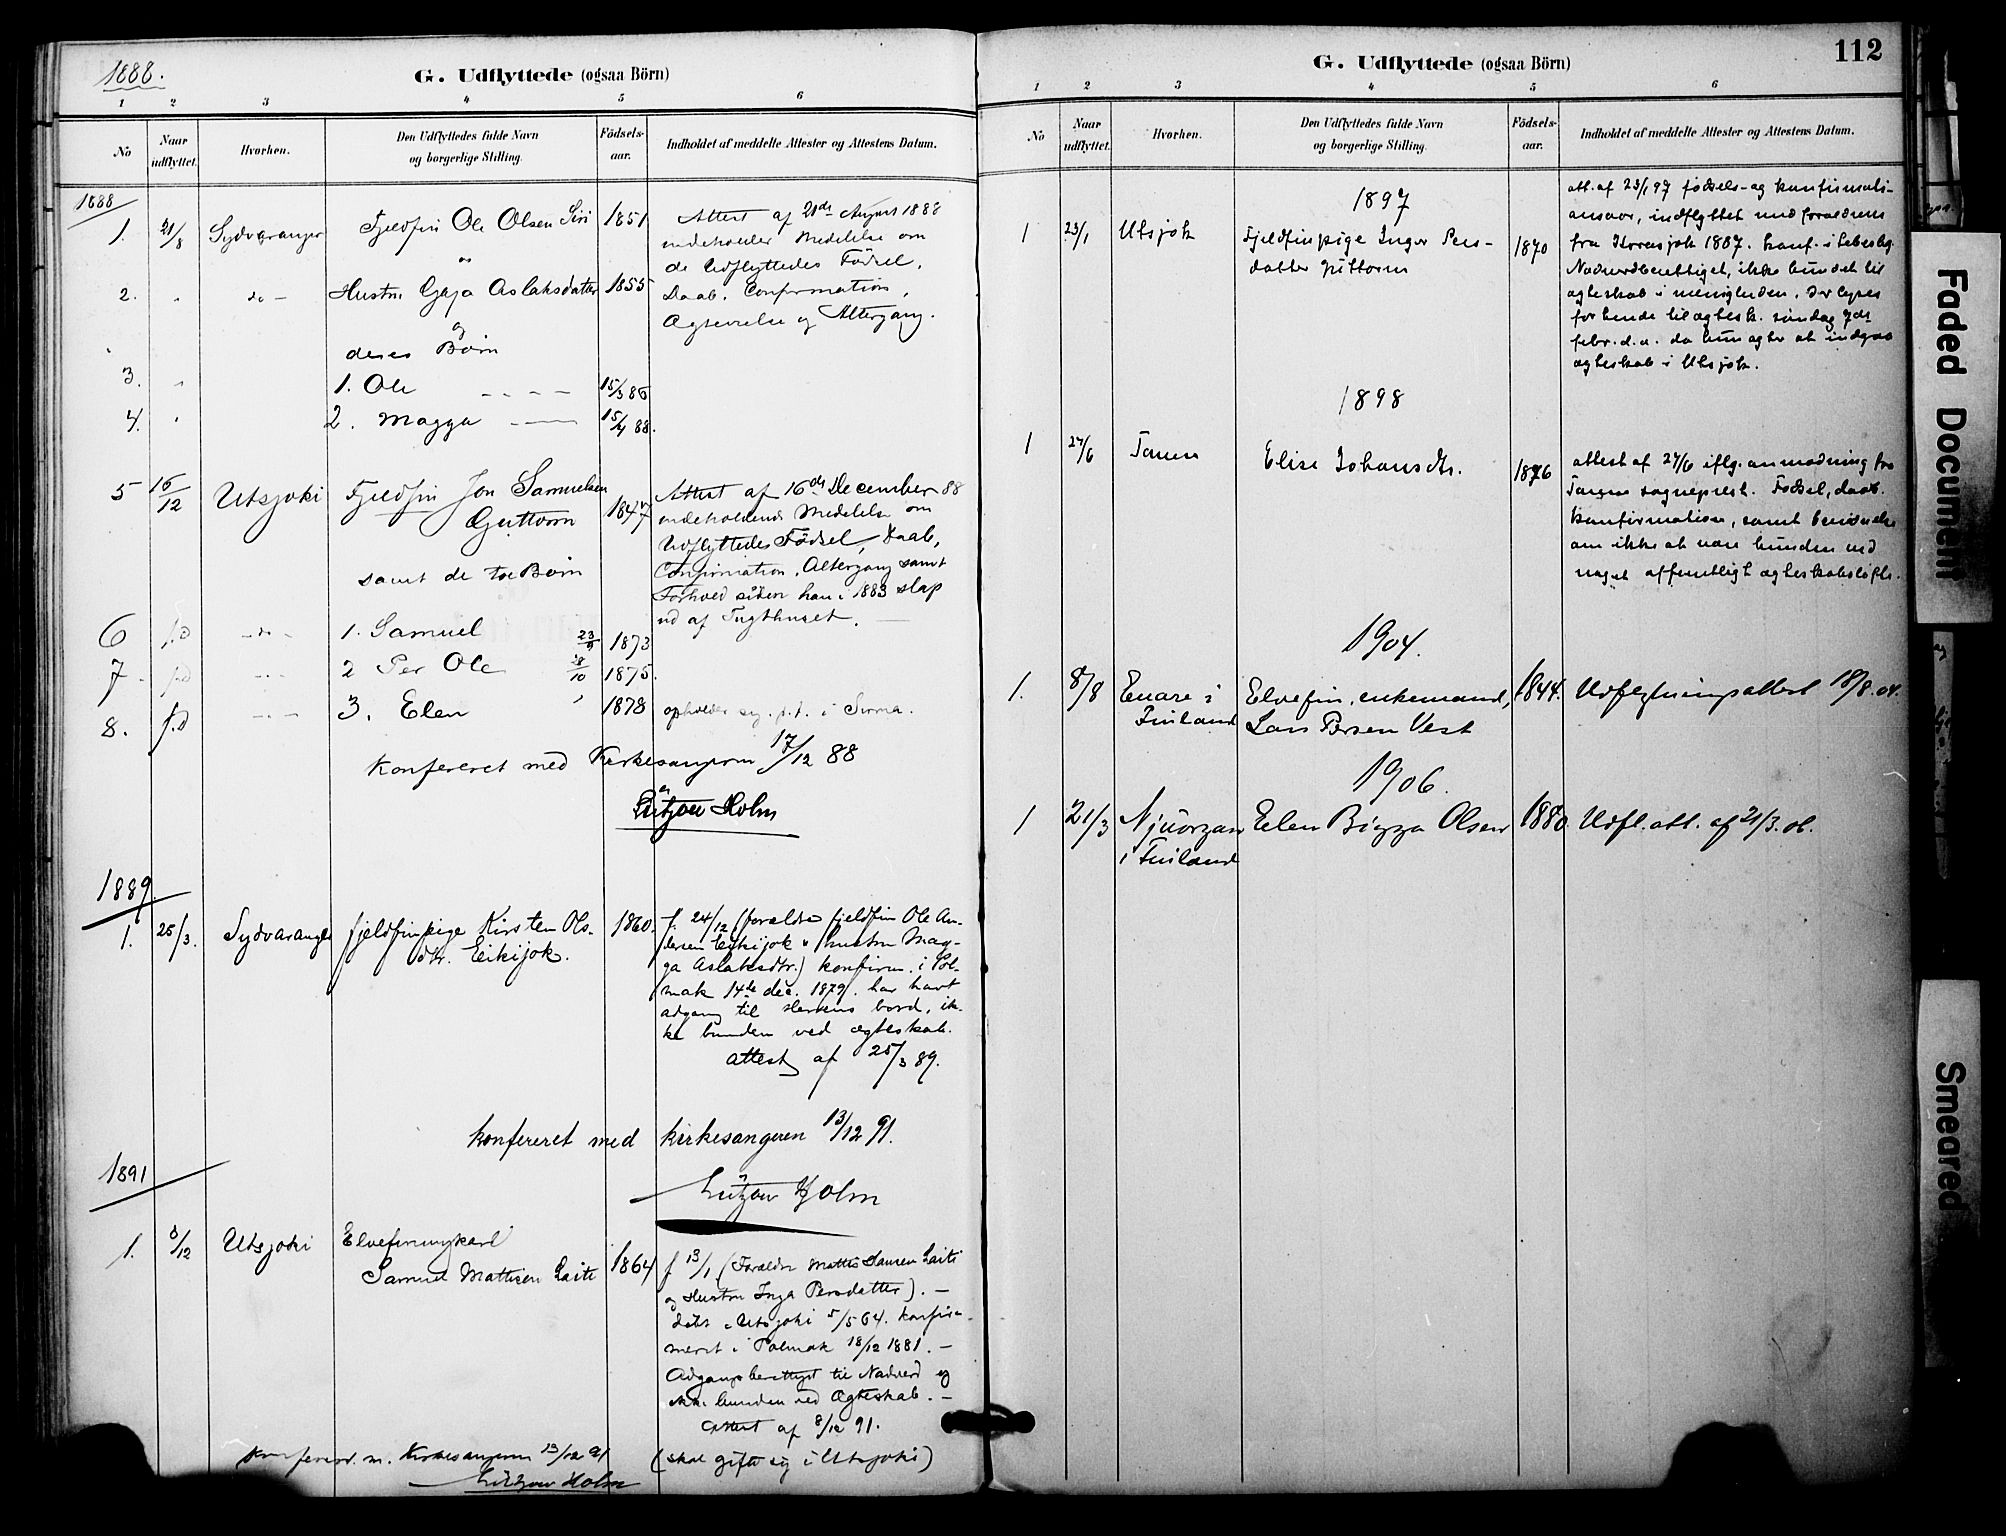 1888.
G. Udflyttede (ogsaa Börn)
1 2 3 4 5 6
No
Naar udflyttet.
Hvorhen.
Den Udflyttedes fulde Navn og borgerlige Stilling.
Födsels-aar.
Indholdet af meddelte Attester og Attestens Datum.
1888
1. 21/8 Sydvaranger Fjeldfin Ole Olsen Siri 1851
Attest af 21de August 1888
indeholder Meddelelse om
de Udflyttedes Fødsel,
Daab, Confirmation,
Ægtevielse og Altergang.
2. " do - Hustru Gaja Aslaksdatter 1855
og
deres Børn
3. " 1. Ole 15/3 86
4. " 2. Magga 15/4 88.
5 16/12 Utsjoki Fjeldfin Jon Samuelsen 1847
Guttorm
samt de tre Børn
Attest af 16de December 88
indeholdende Meddelelse om
Udflyttedes Fødsel, Daab,
Confirmation, Altergang samt
Forhold siden han i 1883 slap
ud af Tugthuset.
6 f.d - do - 1. Samuel 23/9 1873
7 f.d 2 Per Ole 28/10 1875.
8. f.d 3. Elen " 1878 opholder sig p.t. i Sirma.
Konfereret med Kirkesangeren 17/12 88
Lützow Holm
1889
1. 25/3. Sydvaranger fjeldfinpige Kirsten Ols- 1860.
dtr. Leikijok.
f. 24/12 (forældre fjeldfin Ole An-
dersen Leikijok & hustru Mag-
ga Aslaksdtr.) konfirm. i Pol-
mak 14de dec. 1879. har havt
adgang til Herrens bord, ik-
ke bunden ved ægteskab.
Attest af 25/3 89.
konfereret med kirkesangeren 13/12 91.
Lützow Holm
1891
1. 8/12 Utsjoki Elvefinungkarl
Samuel Mathisen Laiti 1864
f 13/1 (Forældre Mattis Hansen Laiti
og Hustru Inga Persdatter). -
døbt i Utsjoki 5/5 64. konfir-
meret i Polmak 18/12 1881. -
Adgangsberettiget til Nadverd og
ikke bunden ved Ægteskab. -
Attest af 8/12 91.
(skal gifte sig i Utsjoki)
Konfereret m. Kirkesangeren 13/12 91
Lützow Holm
G. Udflyttede (ogsaa Börn)
112
1 2 3 4 5 6
No
Naar udflyttet.
Hvorhen.
Den Udflyttedes fulde Navn og borgerlige Stilling.
Födsels-aar.
Indholdet af meddelte Attester og Attestens Datum.
1897
1 23/1 Utsjok Fjeldfinpige Inger Pers- 1870
datter Guttorm
att. af 23/1 97 fødsels- og konfirmati-
onsaar, indflyttet med forældrene
fra Karasjok 1887. konf. i Lebesby.
Nadverdberettiget, ikke bundet til
ægteskab i menigheden. Der lyses
for hende til ægtesk. søndag 7de
febr. d.a. da hun agter at indgaa
ægteskab i Utsjok.
1898
1 27/6 Tanen Elise Johansdtr. 1876
attest af 27/6 iflg. anmodning fra
Tanens sogneprest. Fødsel, daab.
konfirmation, samt bevidnelse
om ikke at være bunden ved
noget offentligt ægteskabsløfte.
1904.
1. 8/8 Enare i Finland Elvefin, enkemand, 1844.
Lars Persen Vest
Udflytningsattest 18/8.04.
1906.
1 21/3 Njuorgan i Finland Eelen Bigga Olsen 1880. Udfl. att. af 21/3. 06.
Faded Document
Smeared